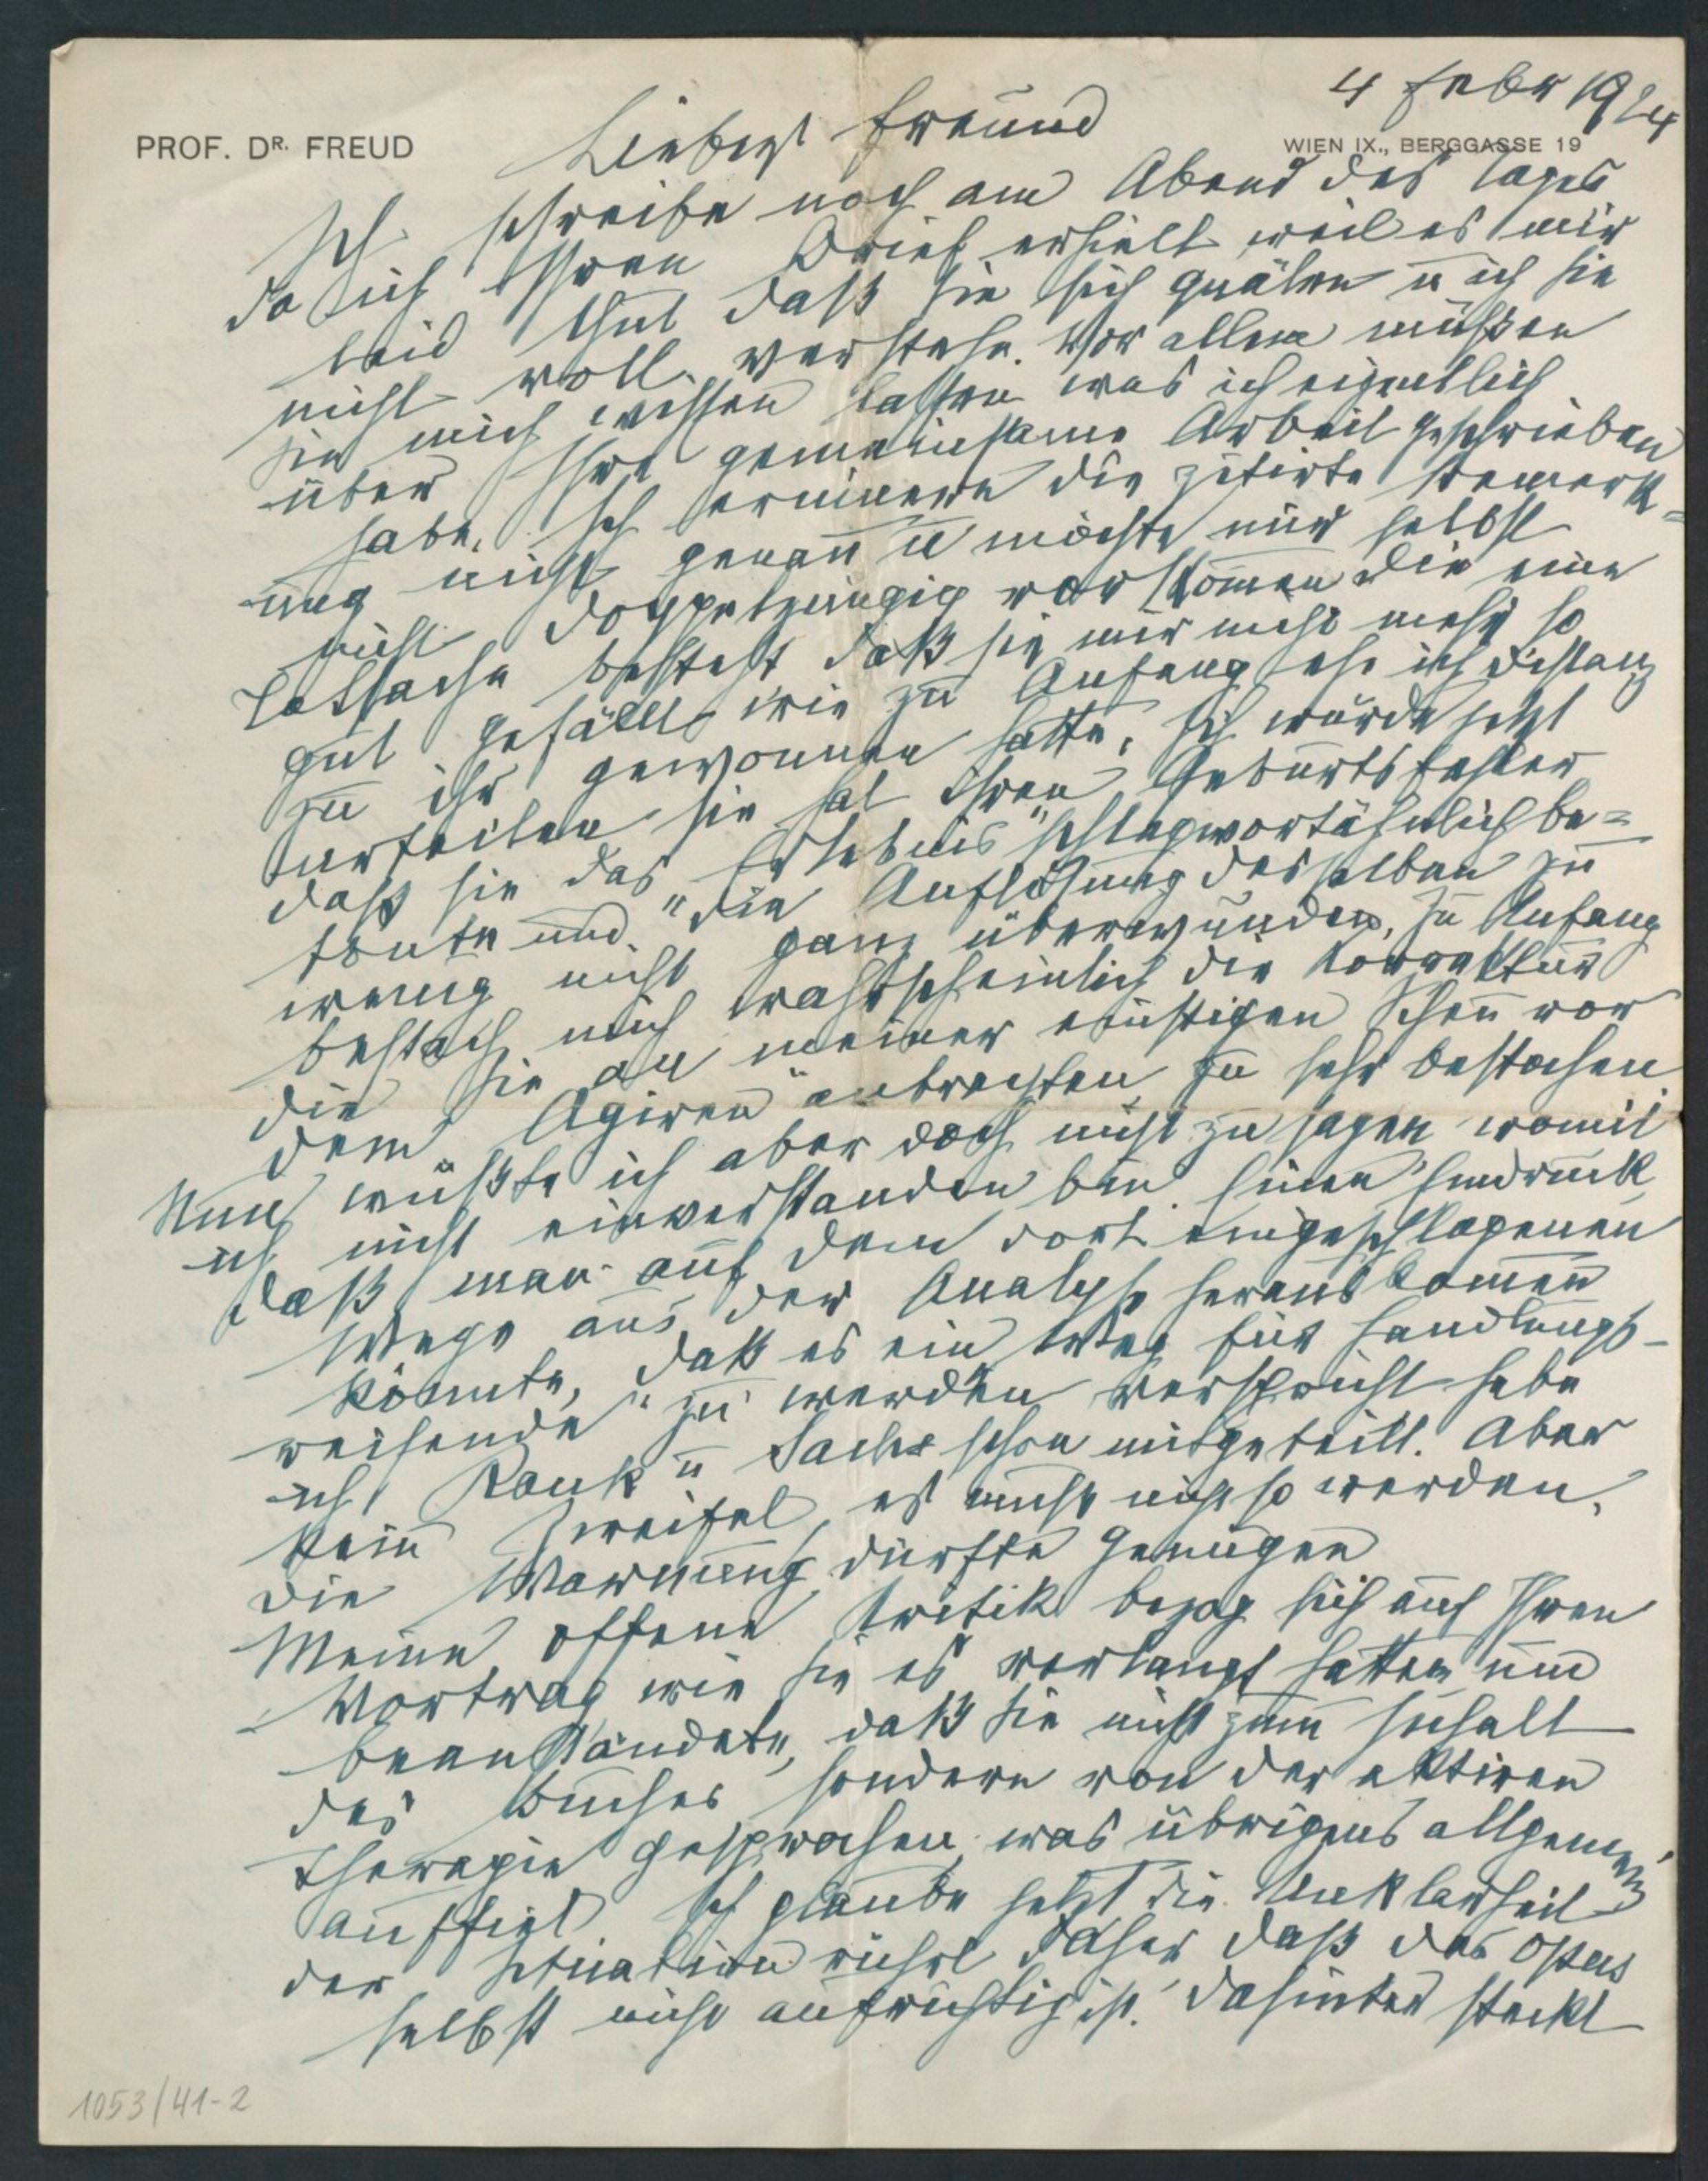 4 Febr 1924
PROF. DR. FREUD
WIEN IX., BERGGASSE 19
Lieber Freund
Ich schreibe noch am Abend des Tages
da ich Ihren Brief erhielt weil es mir
leid thut daß Sie sich quälen u ich Sie
nicht voll verstehe. Vor allem müßen
Sie mich wissen lassen was ich eigentlich
über Ihre gemeinsame Arbeit geschrieben
habe. Ich erinnere die zitirte Bemerk=
ung nicht genau u möchte mir selbst
nicht doppelzüngig vorkommen Die eine
Tatsache besteht daß sie mir nicht mehr so
gut gefällt wie zu Anfang ehe ich Distanz
zu ihr gewonnen hatte. Ich würde jetzt
urteilen sie hat ihren Geburtsfehler
daß sie das „Erlebnis" schlagwortähnlich be=
tonte und die Auflösung desselben zu
wenig nicht ganz überwunden. Zu Anfang
bestach mich wahrscheinlich die Korrektur
die Sie an meiner einstigen Scheu vor
dem „Agiren" anbrachten zu sehr bestochen.
Nun wüßte ich aber doch nicht zu sagen womit
ich nicht einverstanden bin. Einen Eindruck,
daß man auf dem dort eingeschlagenen
Wege aus der Analyse herauskommen
könnte, daß es ein Weg für Handlungs-
reisende" zu werden verspricht habe
ich Rank u Sachs schon mitgeteilt. Aber
kein Zweifel, es muß nicht so werden.
die Warnung dürfte genügen
Meine offene Kritik bezog sich auf Ihren
Vortrag wie Sie es verlangt hatten und
beanständete, daß Sie nicht zum Inhalt
des Buches sondern von der aktiven
Therapie gesprochen, was übrigens allgemein
auffiel Ich glaube jetzt die Unklarheit
der Situation rührt daher daß das Opus
selbst nicht aufrichtig ist. Dahinter steckt
1053/41-2